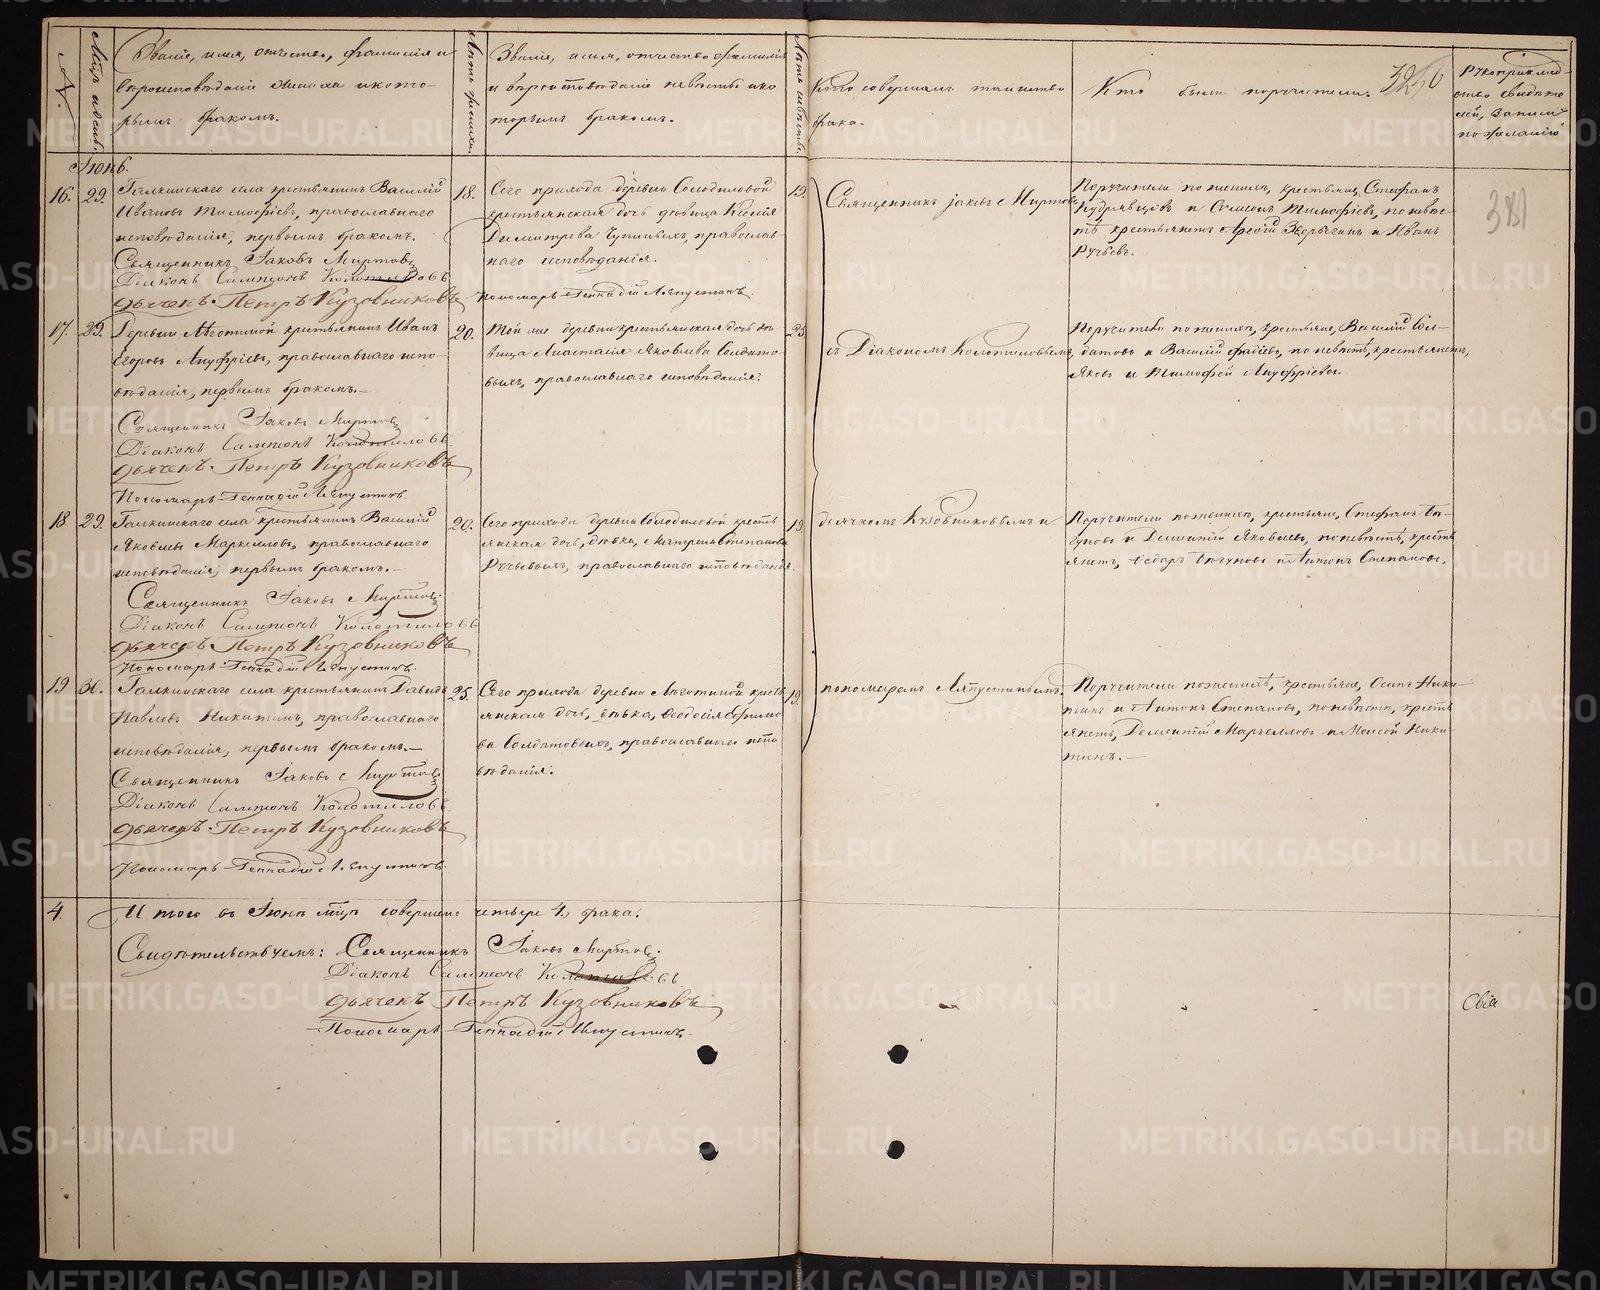 №
Мѣц. и день.
Званіе, имя, отчество, фамилія и
вѣроисповѣданіе жениха и кото-
рымъ бракомъ.
Лѣта жениха.
Званіе, имя, отчество фамилія
и вѣроисповѣданіе невѣсты и ко
торымъ бракомъ.
Лѣта невѣсты.
Кто совершалъ таинство
брака.
Кто были поручители.
Рукоприклад-
ство свидѣте
лей, записи
по желанію
381
Іюнь.
16. 29.
Галкинскаго села крестьянинъ Василій
Ивановъ Тимофѣевъ, православнаго
исповѣданія, первымъ бракомъ.
Священникъ Іаковъ Миртовъ
Діаконъ Сампсонъ Колотиловъ
Дьячекъ Петръ Кузовниковъ
18.
Сего прихода деревни Солодиловой
крестьянская дочь дѣвица
Димитріева православ-
наго исповѣданія.
Пономарь Геннадій Ляпустинъ.
19.
Священникъ Іаковъ Миртовъ
Поручители по женихѣ, крестьяне, Стефанъ
Кудрявцовъ и Симеонъ Тимофѣевъ, по невѣс-
тѣ крестьянинъ и Иванъ
Ручьевъ.
17. 29.
Деревни Лѣготиной крестьянинъ Иванъ
Егоровъ Ануфріевъ, православнаго испо-
вѣданія, первымъ бракомъ.—
Священникъ Іаковъ Миртовъ
Діаконъ Сампсонъ Колотиловъ
Дьячекъ Петръ Кузовниковъ
Пономарь Геннадій Ляпустинъ.
20.
Той же деревни крестьянская дочь дѣ
вица Анастасія Яковлева Солдато-
выхъ, православнаго исповѣданія.
25
съ Діакономъ Колотиловымъ,
Поручители по женихѣ, крестьяне, Василій Сол-
датовъ и Василій Фадѣевъ, по невѣстѣ, крестьянинъ,
Яковъ и Тимофей Ануфріевы.
18 29.
Галкинскаго села крестьянинъ Василій
Яковлевъ Маркеловъ, православнаго
исповѣданія, первымъ бракомъ.—
Священникъ Іаковъ Миртовъ
Діаконъ Сампсонъ Колотиловъ
Дьячекъ Петръ Кузовниковъ
Пономарь Геннадій Ляпустинъ.
20.
Сего прихода деревни Солодиловой кресть
янская дочь, дѣвка, Матрена Степанова
Ручьевыхъ, православнаго исповѣданія.
19
дьячкомъ Кузовниковымъ и
Поручители по женихѣ, крестьяне, Стефанъ
и Дементій Яковлевъ, по невѣстѣ, кресть
янинъ, Ѳедоръ и Антонъ Степановъ.
19 30.
Галкинскаго села крестьянинъ Давидъ
Павловъ Никитинъ, православнаго
исповѣданія, первымъ бракомъ.—
Священникъ Іаковъ Миртовъ
Діаконъ Сампсонъ Колотиловъ
Дьячекъ Петръ Кузовниковъ
Пономарь Геннадій Ляпустинъ.
25.
Сего прихода деревни Лѣготиной кресть
янская дочь, дѣвка, Ѳеодосія Ефимо
ва Солдатовыхъ, православнаго испо
вѣданія.
19.
пономаремъ Ляпустинымъ.
Поручители по женихѣ, крестьяне, Осипъ Ники-
тинъ и Антонъ Степановъ, по невѣстѣ, кресть
янинъ, Дементій Маркелловъ и Моисей Ники-
тинъ.—
4.
И того въ Іюнѣ мцѣ совершено четыре 4, брака.
Свидѣтельствуемъ: Священникъ Іаковъ Миртовъ.
Діаконъ Сампсонъ Колотиловъ
Дьячекъ Петръ Кузовниковъ
Пономарь Геннадій Ляпустинъ.
METRIKI.GASO-URAL.RU